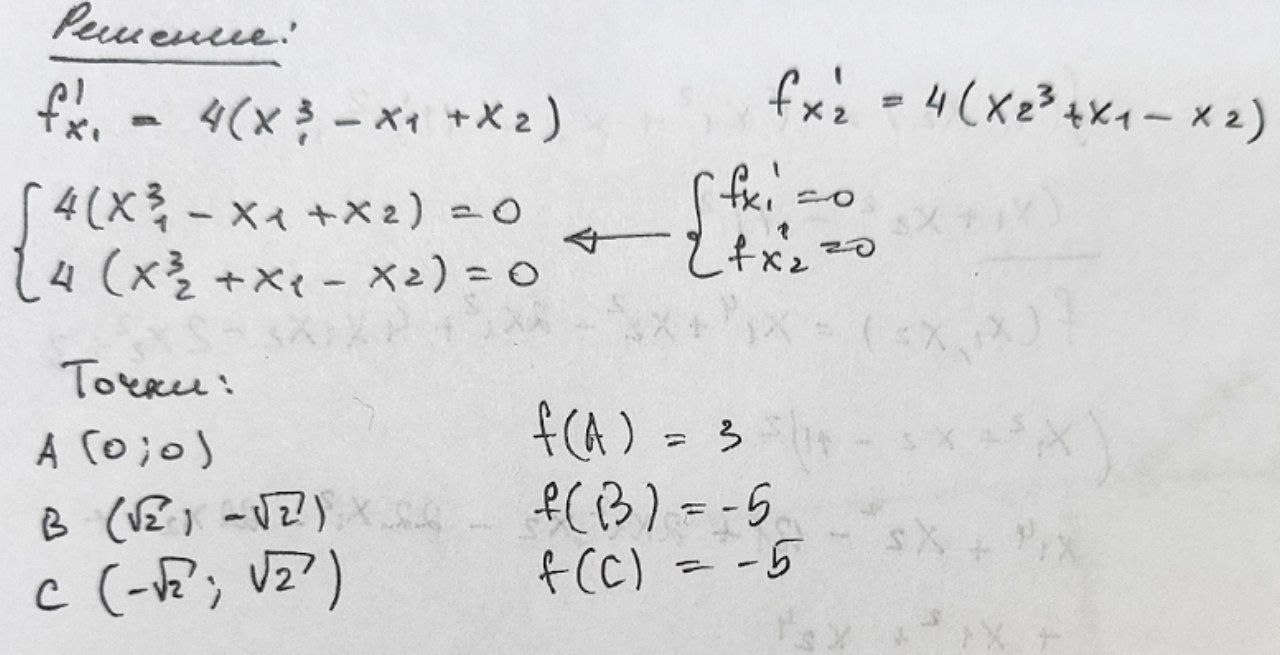 Решение:
f'x₁ = 4(x₁³ - x₁ + x₂) f'x₂ = 4(x₂³ + x₁ - x₂)
{ 4(x₁³ - x₁ + x₂) = 0 ← { f'x₁ = 0
4(x₂³ + x₁ - x₂) = 0 f'x₂ = 0
Точки:
A (0; 0) f(A) = 3
B (√2; -√2) f(B) = -5
C (-√2; √2) f(C) = -5